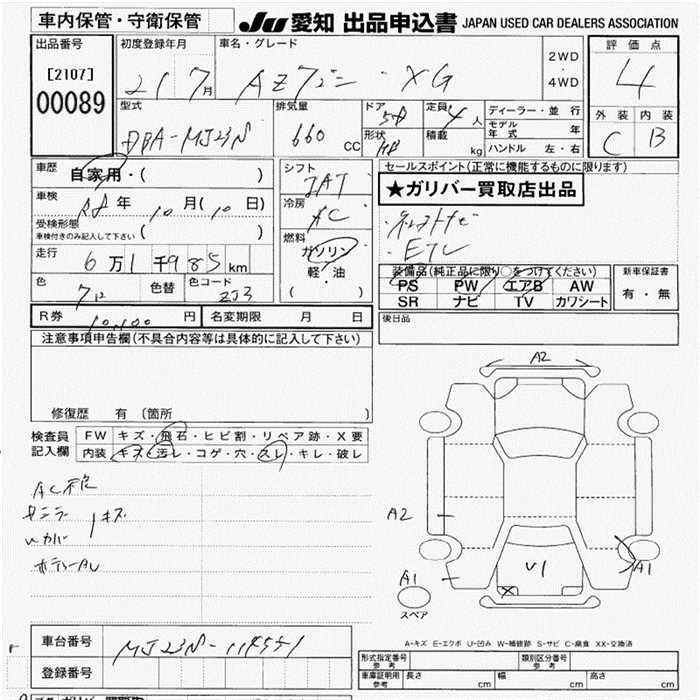 車内保管・守衛保管
JU 愛知 出品申込書 JAPAN USED CAR DEALERS ASSOCIATION
出品番号
[2107]
00089
初度登録年月
21 7月
車名・グレード
AZワゴン XG
2WD
・
4WD
評価点
4
外装 内装
C B
型式
DBA-MJ23S
排気量
660 CC
ドア
5D
形状
HB
定員
4人
積載
kg
ディーラー・並行
モデル年式 年
ハンドル 左・右
車歴
自家用・( )
車検
R8年 10月(10日)
受検形態
車検付きのみ記入して下さい ( )
走行
6万1千985km
色
色替
色コード
ZJ3
シフト
IAT
冷房
AC
燃料
ガソリン
軽・油
( )
セールスポイント(正常に機能するものに限ります)
★ガリバー買取店出品
・ETC
装備品(純正品に限り○をつけてください)
PS PW エアB AW
SR ナビ TV カワシート
新車保証書
有・無
後日品
R券 10,100円
名変期限 月 日
注意事項申告欄(不具合内容等は具体的に記入して下さい)
修復歴 有 〔箇所 〕
検査員記入欄
FW キズ・飛石・ヒビ割・リペア跡・X要
内装 キズ・汚レ・コゲ・穴・スレ・キレ・破レ
AC不良
キズ
A2
A2
A1
U1
X
A1
スペア
A-キズ E-エクボ U-凹み W-補修跡 S-サビ C-腐食 XX-交換済
車台番号
登録番号
型式指定番号 参考
類別区分番号 参考
車庫証明用 参考 長さ cm 幅 cm 高さ cm